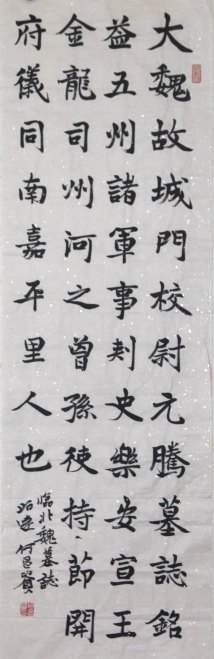 大魏故城門校尉元騰墓誌銘
益五州諸軍事刾史樂安宣王
金龍司州河之曾孫使持節開
府儀同南嘉平里人也
臨北魏墓誌